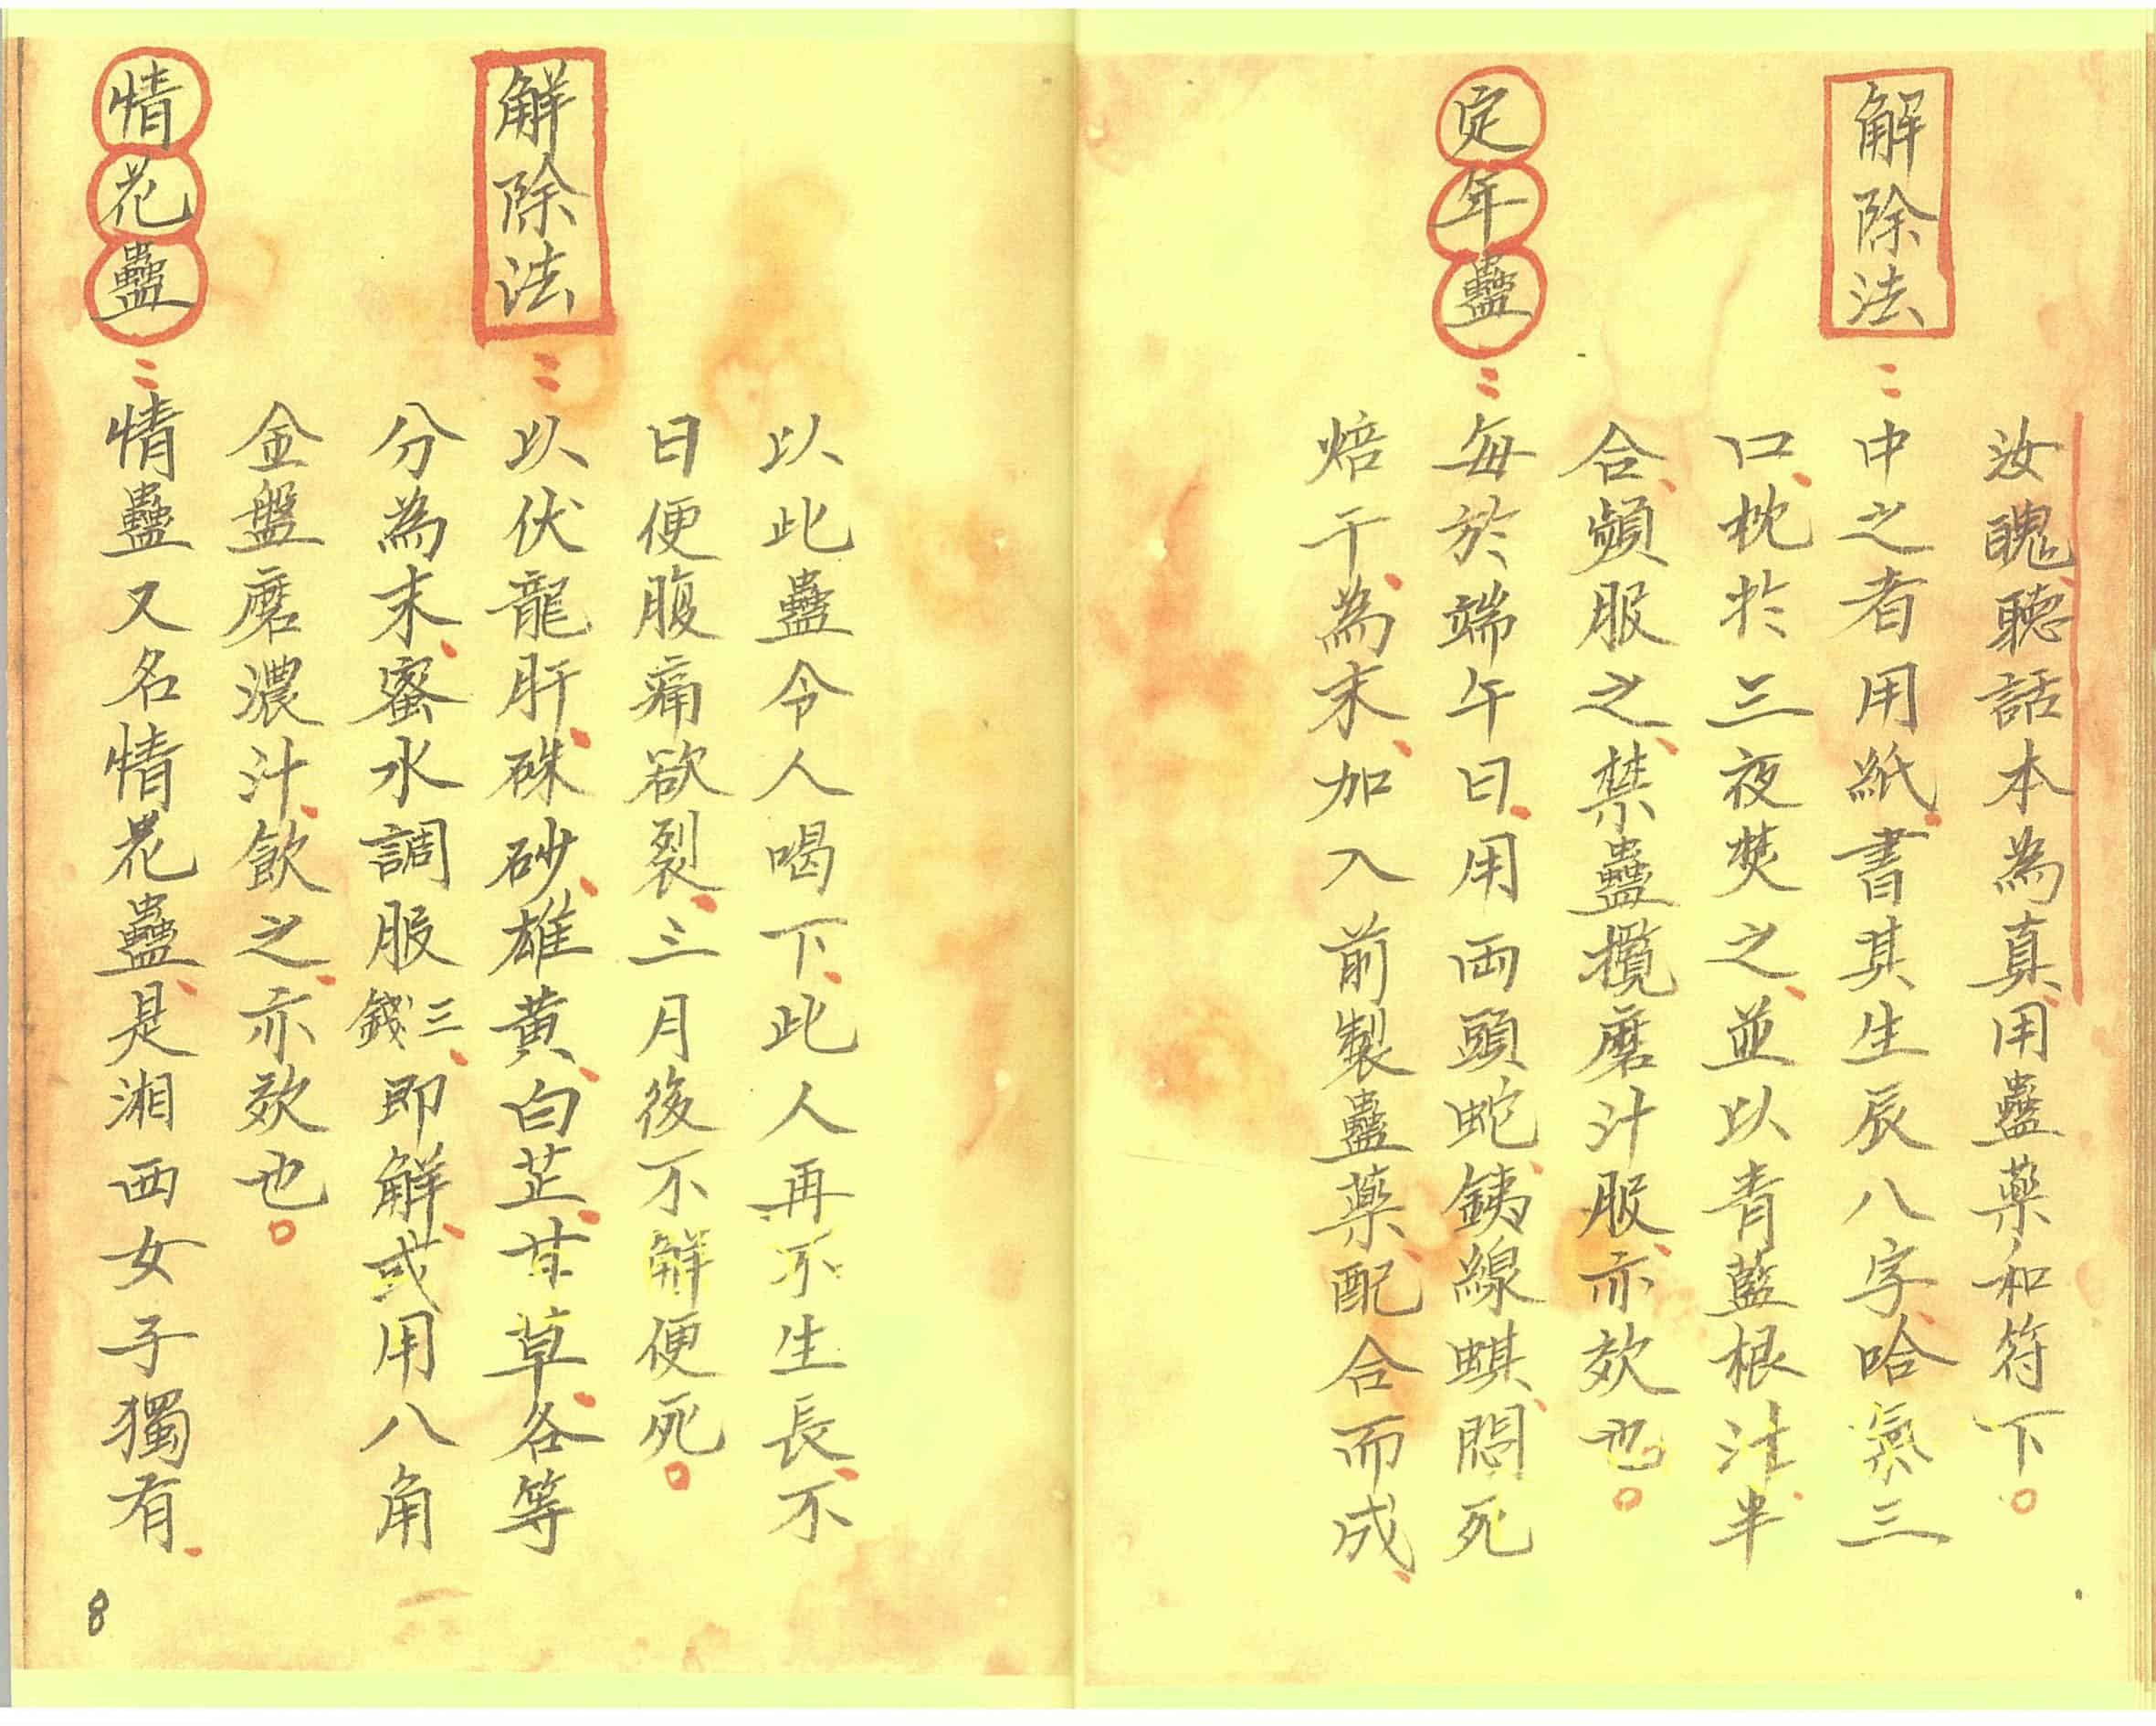 汝醜聽話本為真用蠱藥和符下。
解除法：中之者用紙、書其生辰八字、哈氣三
口、枕於三夜焚之、並以青藍根汁、半
合、頻服之、禁蠱攬磨汁服、亦效也。
定年蠱：每於端午日、用両頭蛇、銕線蜞、悶死
焙干、為末、加入前製蠱藥、配合而成、
以此蠱令人喝下、此人再不生長、不
日便腹痛欲裂、三月後不解便死。
解除法：以伏龍肝、硃砂、雄黃、白芷、甘草、各等
分為末、蜜水調服三錢、即解、或用八角
金盤磨濃汁、飲之、亦效也。
情花蠱：情蠱又名情花蠱、是湘西女子獨有、
8